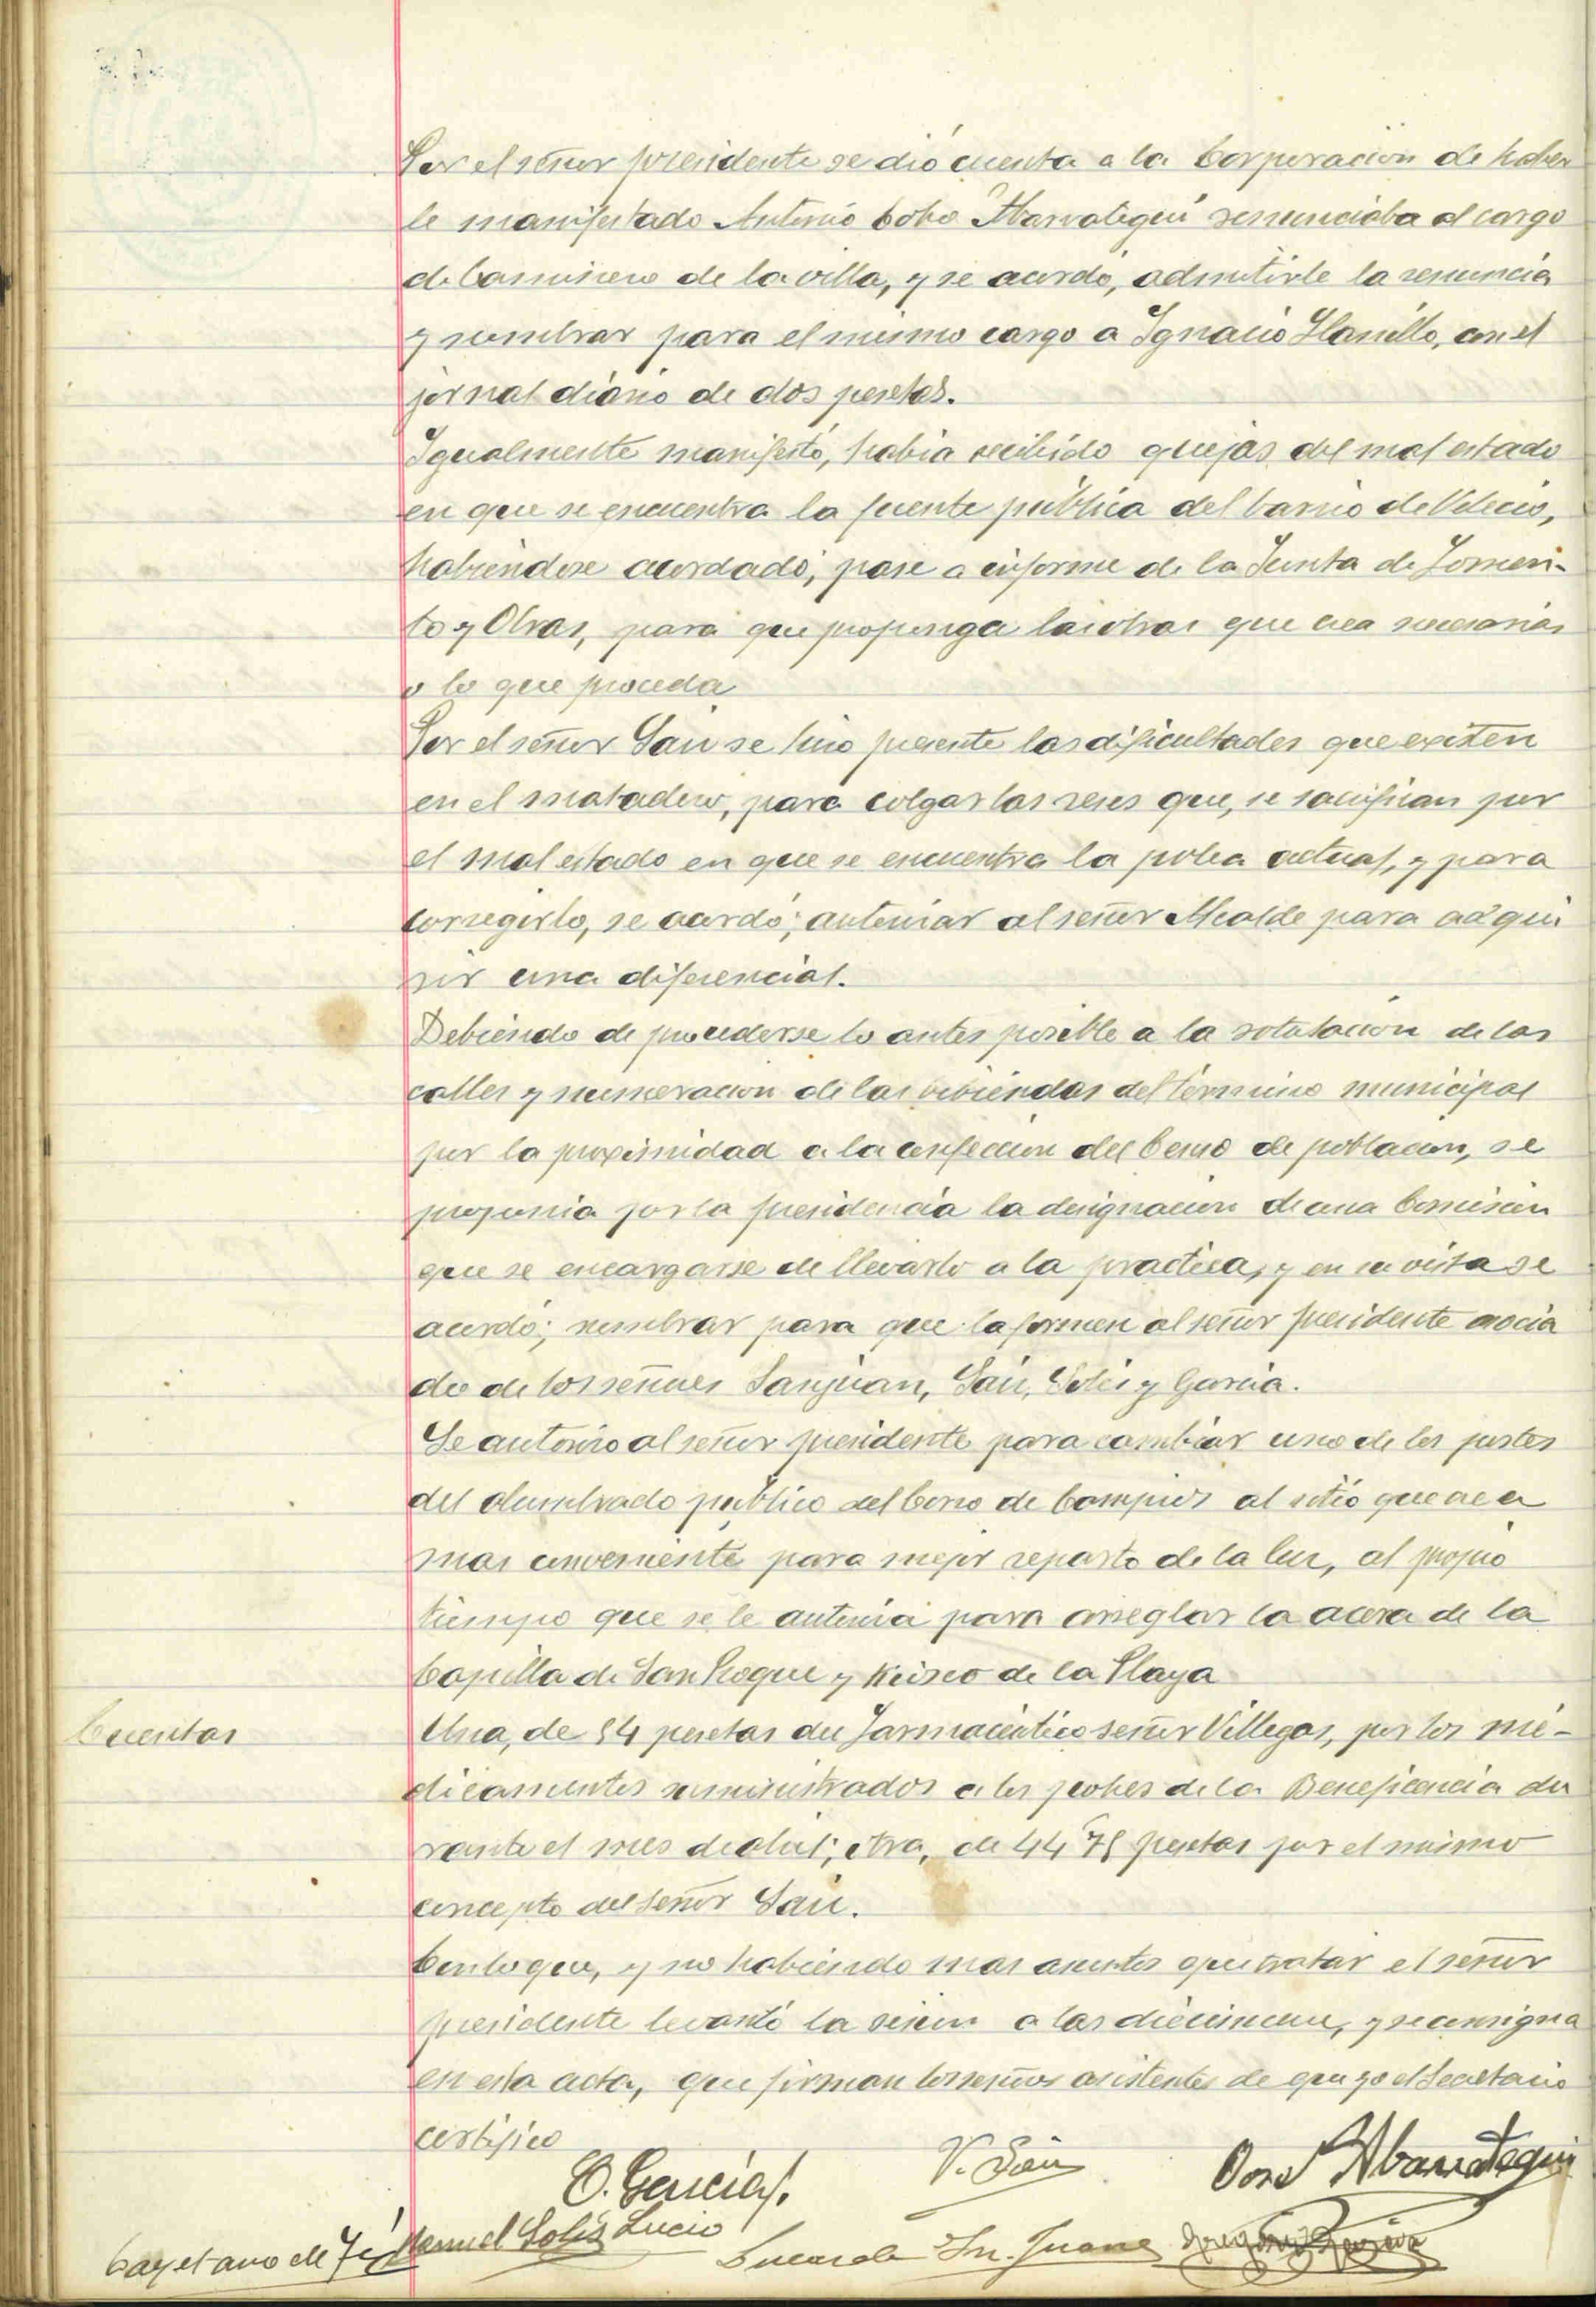 Por el señor presidente se dió cuenta a la Corporacion de haber
le manifestado Antonio Cobo Abarrategui renunciaba al cargo
de Caminero de la villa, y se acordó, admitirle la renuncia
y nombrar para el mismo cargo a Ignacio Llanillo, con el
jornal diario de dos pesetas.
Igualmente manifestó, habia recibido quejas del mal estado
en que se encuentra la fuente pública del barrio de Velecio,
habiendose acordado, pase a informe de la Junta de Fomen-
to y Obras, para que proponga las obras que crea necesarias
o lo que proceda
Por el señor Sain se hizo presente las dificultades que existen
en el matadero, para colgar las reses que, se sacrifican por
el mal estado en que se encuentra la polea actual, y para
corregirlo, se acordó; autorizar al señor Alcalde para adqui
rir una diferencial.
Debiendo de procederse lo antes posible a la rotulacion de las
calles y numeracion de las bibiendas del término municipal
por la proximidad a la confeccion del Censo de poblacion, se
proponia por la presidencia la designacion de una Comision
que se encargarse de llevarlo a la practica, y en su vista se
acordó; nombrar para que la formen al señor presidente asocia
do de los señores Sanjuan, Sain, Solis y Garcia.
Se autorizo al señor presidente para cambiar uno de los postes
del alumbrado publico del Corro de Campios al sitio que crea
mas conveniente para mejor reparto de la luz, al propio
tiempo que se le autoriza para arreglar la acera de la
Capilla de San Roque y Kiosco de la Playa
Cuentas
Una, de 54 pesetas del Farmacéutico señor Villegas, por los me-
dicamentos suministrados a los pobres de la Beneficencia du
rante el mes de abril; otra, de 44'75 pesetas por el mismo
concepto del señor Sain.
Con lo que, y no habiendo mas asuntos que tratar el señor
presidente levantó la sesion a las diecinueve, y se consigna
en esta acta, que firman los señores asistentes de que yo el Secretario
certifico
C. Garcia
V. Sain
José Abarrategui
Cayetano de
Manuel Solis Lucio
Sn. Juan